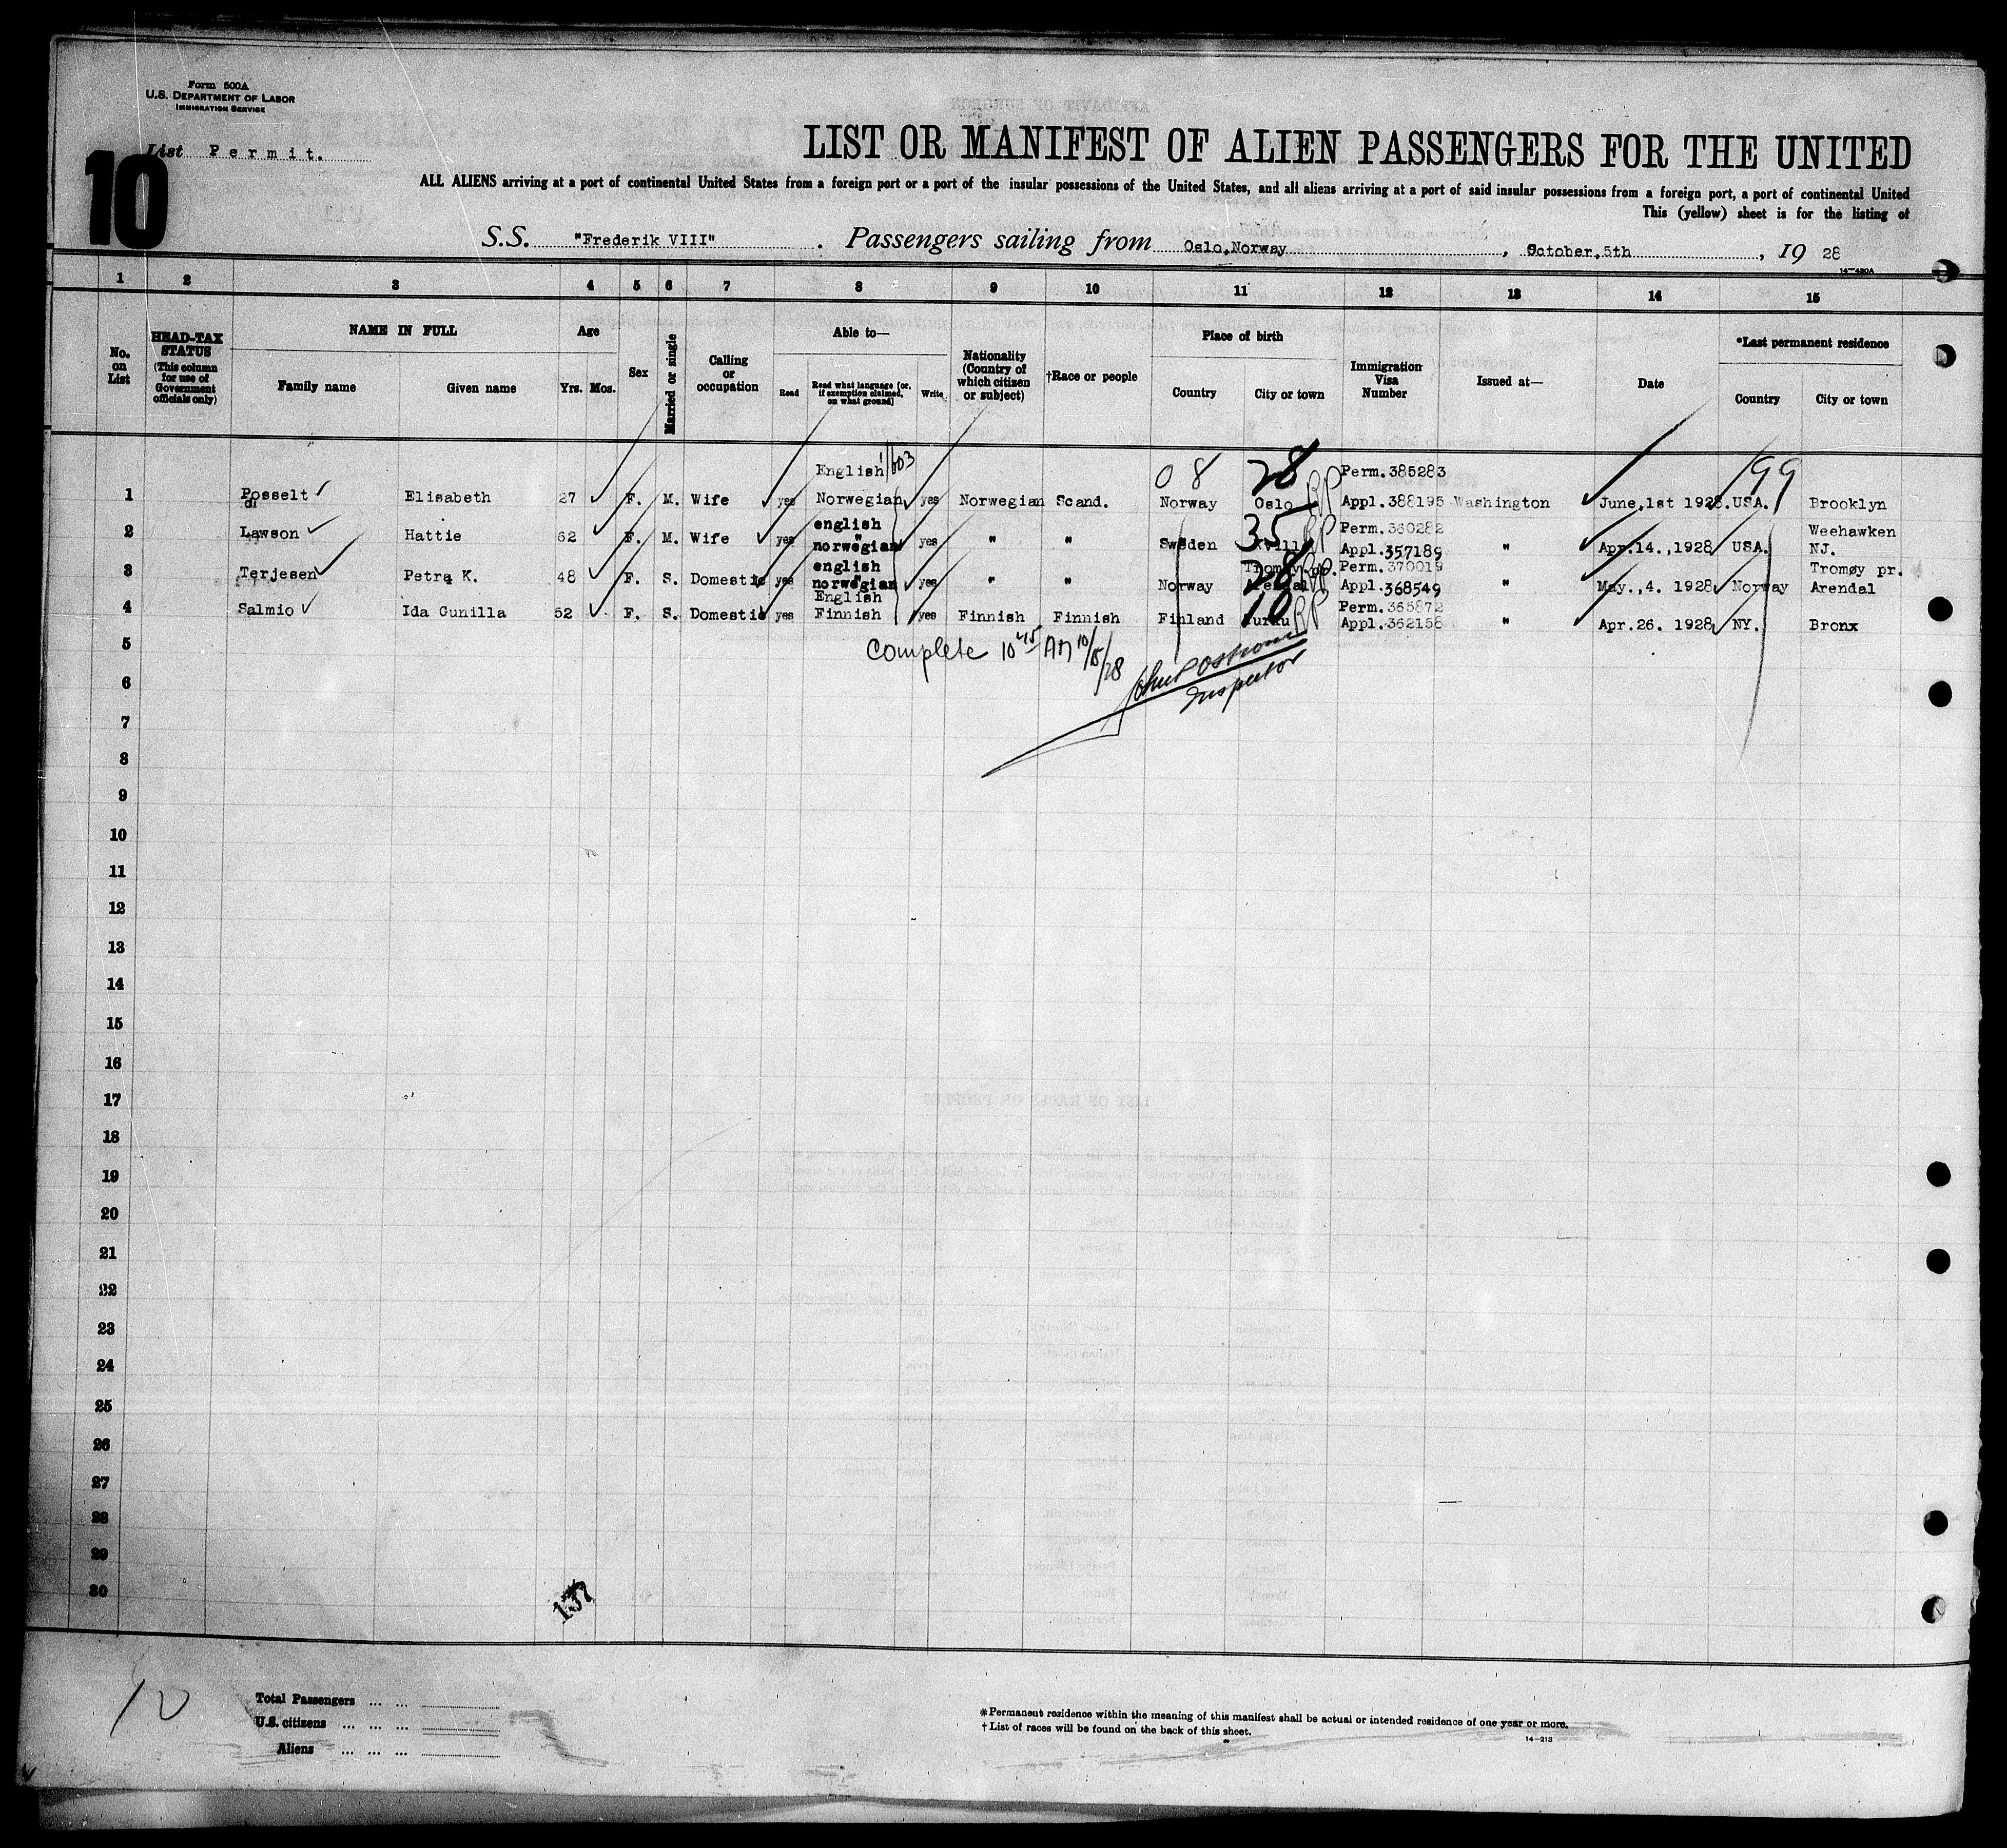 Form 500A
U.S. DEPARTMENT OF LABOR
IMMIGRATION SERVICE
10
List Permit.
LIST OR MANIFEST OF ALIEN PASSENGERS FOR THE UNITED
ALL ALIENS arriving at a port of continental United States from a foreign port or a port of the insular possessions of the United States, and all aliens arriving at a port of said insular possessions from a foreign port, a port of continental United
This (yellow) sheet is for the listing of
S.S. "Frederik VIII" . Passengers sailing from Oslo,Norway , October,5th , 19 28
14-480A
1 2 3 4 5 6 7 8 9 10 11 12 13 14 15
No. on List
HEAD-TAX STATUS (This column for use of Government officials only)
NAME IN FULL
Family name
Given name
Age
Yrs. Mos.
Sex
Married or single
Calling or occupation
Able to—
Read
Read what language [or, if exemption claimed, on what ground]
Write
Nationality (Country of which citizen or subject)
†Race or people
Place of birth
Country
City or town
Immigration Visa Number
Issued at—
Date
*Last permanent residence
Country
City or town
English 1/603 08 28 Perm.385283 199
1 Posselt Elisabeth 27 F. M. Wife yes Norwegian yes Norwegian Scand. Norway Oslo Appl.388195 Washington June,1st 1928. USA. Brooklyn
english 35 Perm.360282 Weehawken
2 Lawson Hattie 62 F. M. Wife yes norwegian yes " " Sweden Appl.357189 " Apr.14.,1928 USA. NJ.
english 28 Perm.370019 Tromøy pr.
3 Terjesen Petra K. 48 F. S. Domestic yes norwegian yes " " Norway Arendal Appl.368549 " May.,4. 1928 Norway Arendal
English 10 Perm.365872
4 Salmio Ida Gunilla 52 F. S. Domestic yes Finnish yes Finnish Finnish Finland Turku Appl.362158 " Apr.26. 1928 NY. Bronx
5
Complete 10 45 AM 10/15/28
Inspector
6
7
8
9
10
11
12
13
14
15
16
17
18
19
20
21
22
23
24
25
26
27
28
29
30
137
10
Total Passengers ... ...
U.S. citizens ... ... ...
Aliens ... ... ...
*Permanent residence within the meaning of this manifest shall be actual or intended residence of one year or more.
†List of races will be found on the back of this sheet.
14-213